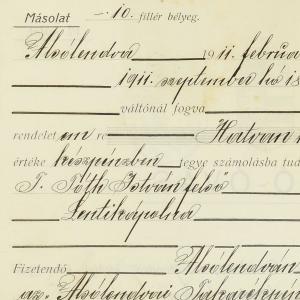 Másolat -.10. fillér bélyeg.
Alsólendva 1911. február
1911. szeptember hó 15
váltónál fogva
rendelet em re Hatvan
értéke készpénzben tegye számolásba tud
T. Tóth István felső
Lentikápolna
Fizetendő Alsólendván
az Alsólendvai Takarékpén